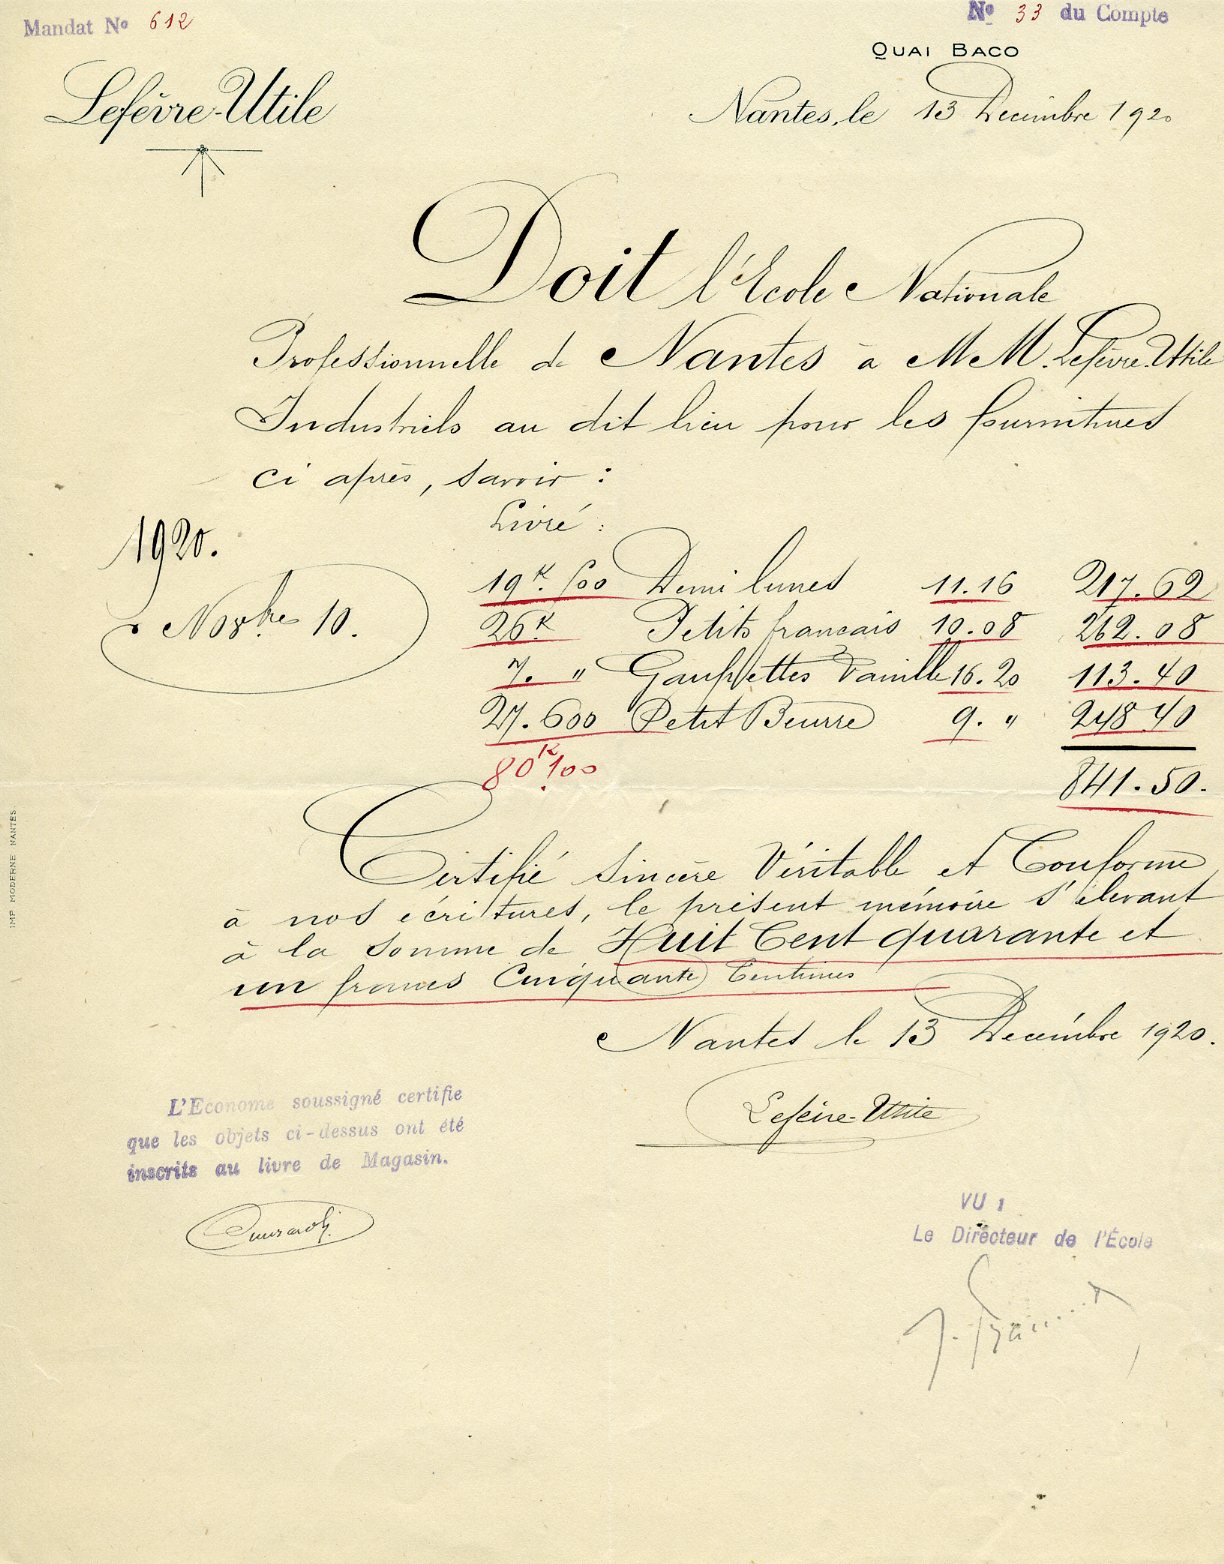 Mandat Nº 612
Nº 33 du Compte
QUAI BACO
Lefèvre-Utile
Nantes, le 13 Décembre 1920
Doit l'Ecole Nationale
Professionnelle de Nantes à MM. Lefèvre-Utile
Industriels au dit lieu pour les fournitures
ci après, savoir :
Livré :
1920.
Novbre 10.
19K.500 Demi lunes 11.16 217.62
26K Petits francais 10.08 262.08
7. " Gaufrettes Vanille 16.20 113.40
27.600 Petit Beurre 9. " 248.40
80K100
841.50.
Certifié Sincère Véritable et Conforme
à nos écritures, le présent mémoire s'élevant
à la somme de Huit Cent quarante et
un francs Cinquante Centimes
Nantes le 13 Décembre 1920.
Lefèvre-Utile
L'Econome soussigné certifie
que les objets ci-dessus ont été
inscrits au livre de Magasin.
VU :
Le Directeur de l'École
IMP. MODERNE NANTES.